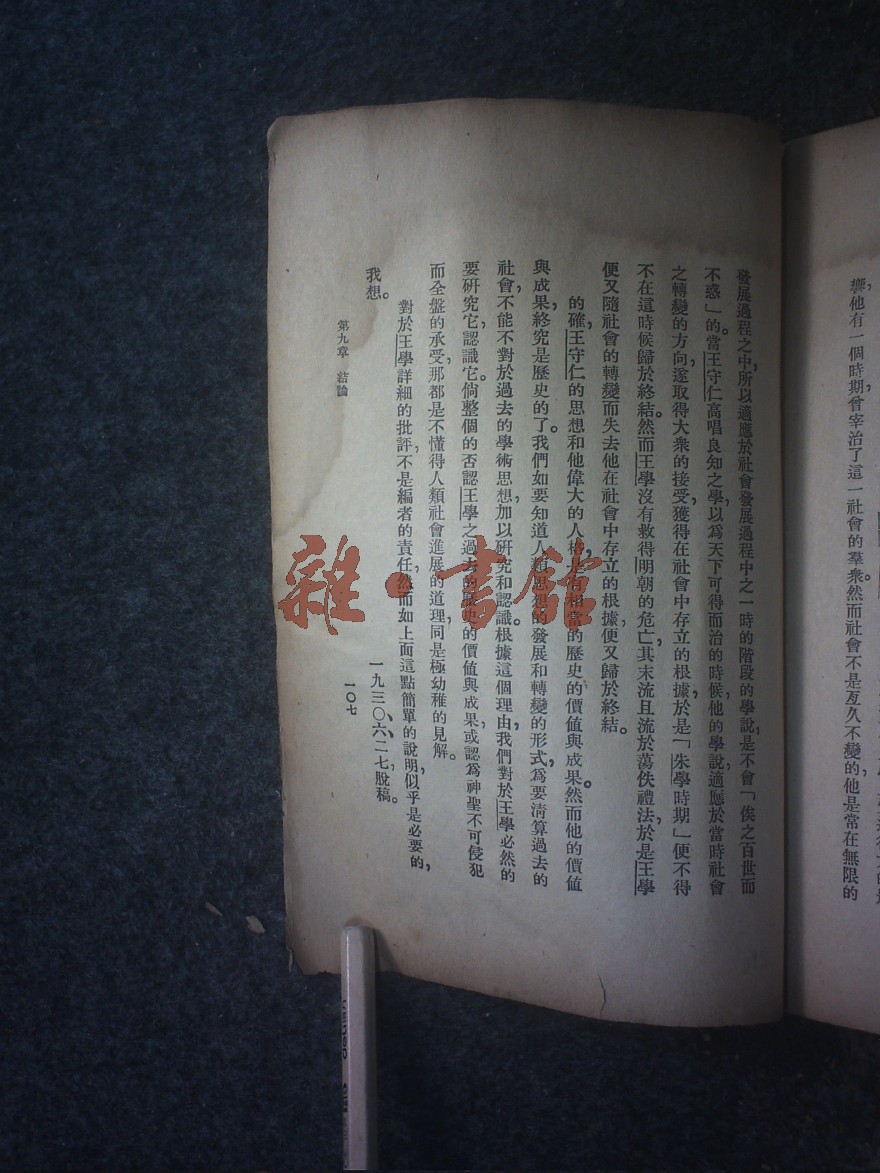 響,他有一個時期曾宰治了這一社會的羣衆然而社會不是亙久不變的他是常在無限的
發展過程之中,所以適應於社會發展過程中之一時的階段的學說,是不會「俟之百世而
不惑」的。當王守仁高唱良知之學,以爲天下可得而治的時候,他的學說適應於當時社會
之轉變的方向,遂取得大衆的接受,獲得在社會中存立的根據,於是「朱學時期」便不得
不在這時候歸於終結。然而王學沒有救得明朝的危亡,其末流且流於蕩佚禮法,於是王學
便又隨社會的轉變而失去他在社會中存立的根據,便又歸於終結。
的確,王守仁的思想和他偉大的人格,是有相當的歷史的價值與成果。然而他的價值
與成果,終究是歷史的了。我們如要知道人類思想的發展和轉變的形式,爲要淸算過去的
社會,不能不對於過去的學術思想加以研究和認識。根據這個理由,我們對於王學必然的
要研究它,認識它。倘整個的否認王學之過去的歷史的價值與成果,或認爲神聖不可侵犯
而全盤的承受,那都是不懂得人類社會進展的道理,同是極幼稚的見解。
對於王學詳細的批評,不是編者的責任,然而如上面這點簡單的說明,似乎是必要的,
我想。
一九三〇、六、二七,脫稿。
第九章 結論
一〇七
雜·書館